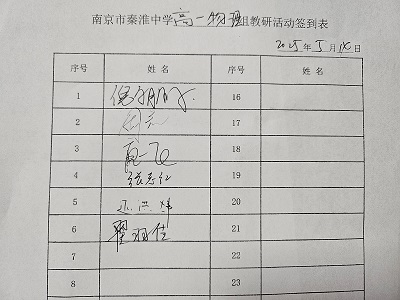 南京市秦淮中学高一物理组教研活动签到表
2025年5月 日
序号 姓名 序号 姓名
1 16
2 17
3 18
4 张志仁 19
5 20
6 翟羽佳 21
7 22
8 23